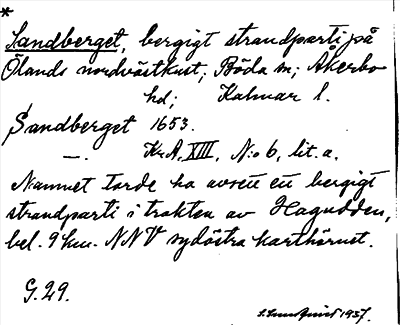 *
Sandberget, bergigt strandparti på
Ölands nordvästkust; Böda sn; Åkerbo
hd; Kalmar l.
Sandberget 1653.
—.— KrA, XIII, N:o 6, lit. a.
Namnet torde ha avsett ett bergigt
strandparti i trakten av Hagudden,
bel. 9 km. NNV sydöstra karthörnet.
G. 29.
1937.